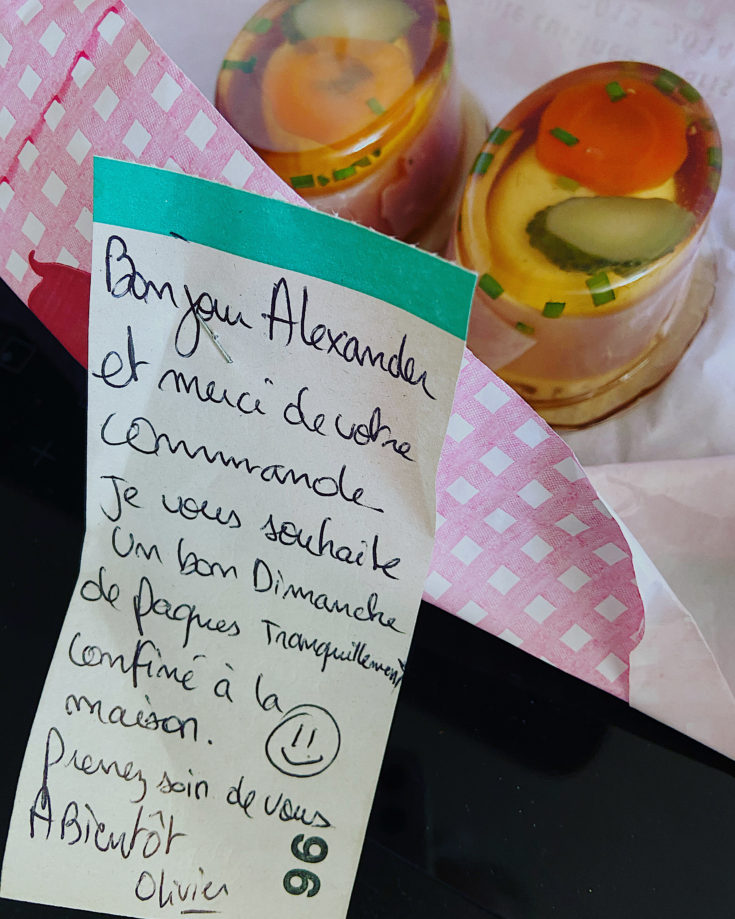 Bonjour Alexander
et merci de votre
commande
Je vous souhaite
un bon Dimanche
de pâques Tranquillement
confiné à la
maison.
Prenez soin de vous
A Bientôt
Olivier
96